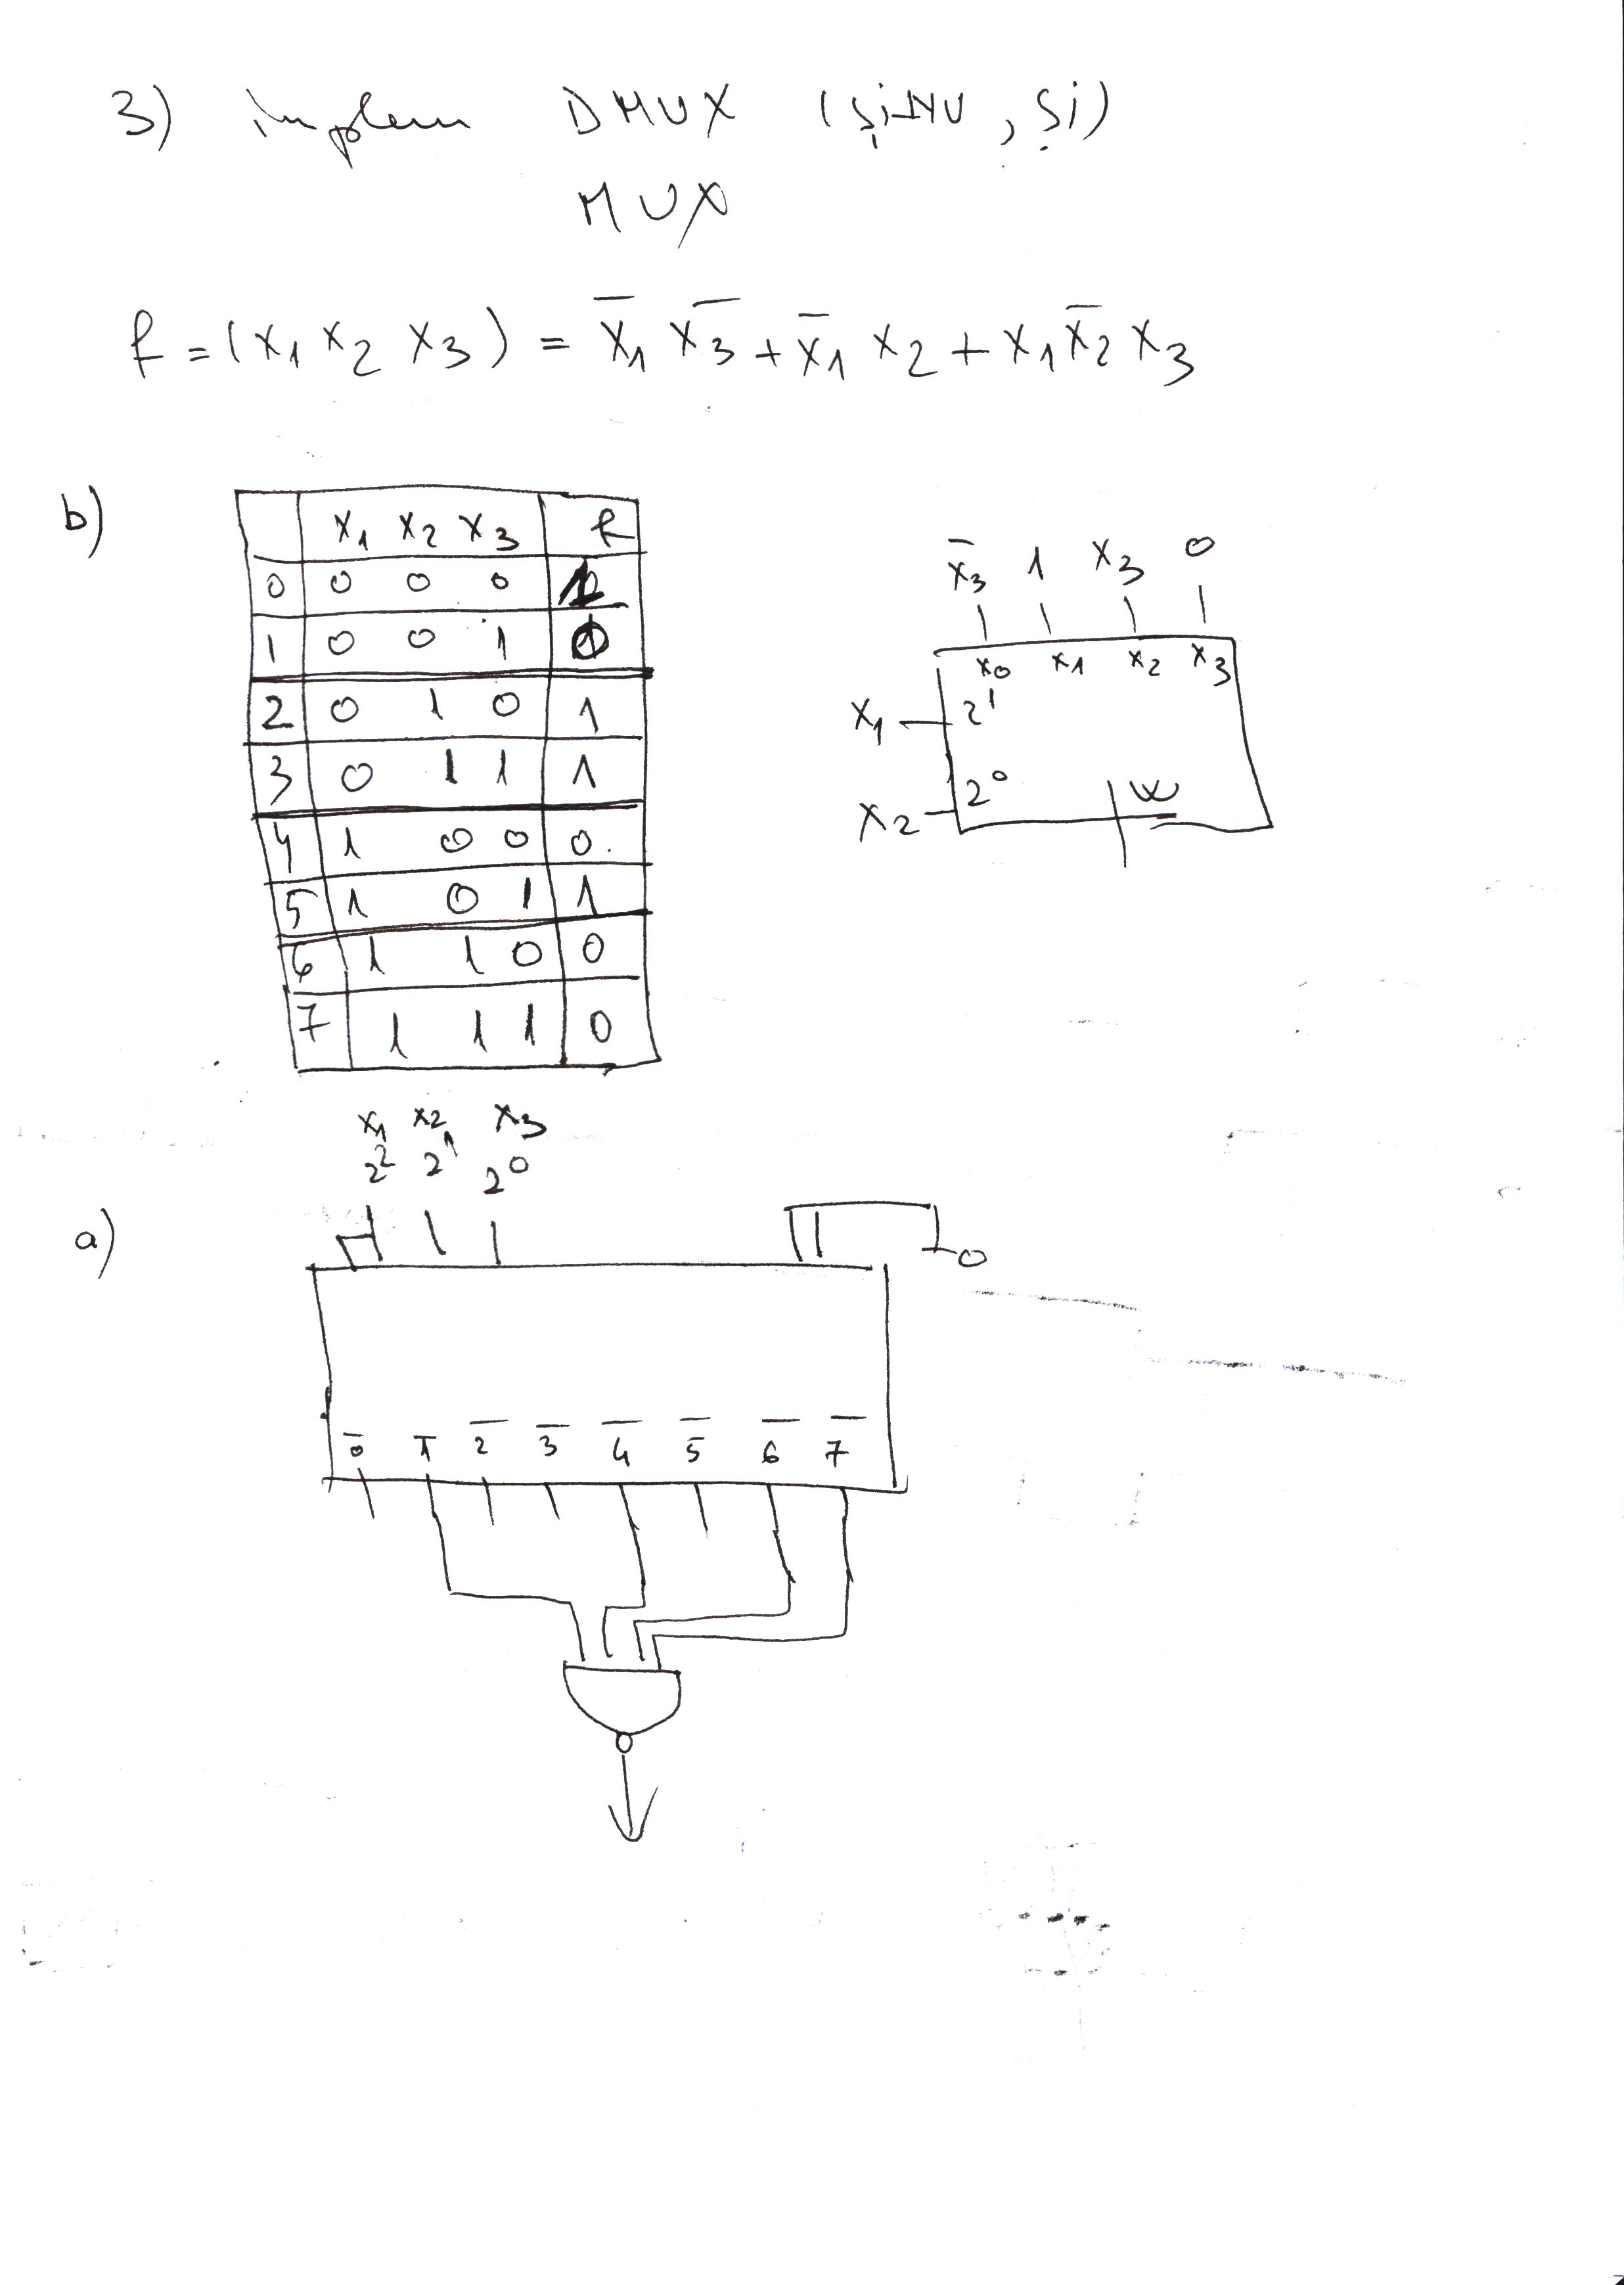 3) implem DMUX (ȘI-NU, ȘI)
MUX
f = (x₁ x₂ x₃) = x̅₁ x̅₃ + x̅₁ x₂ + x₁ x̅₂ x₃
b)
x₁ x₂ x₃ f
0 0 0 0 1
1 0 0 1 0
2 0 1 0 1
3 0 1 1 1
4 1 0 0 0
5 1 0 1 1
6 1 1 0 0
7 1 1 1 0
x̅₃ 1 x₃ 0
x₀ x₁ x₂ x₃
x₁ 2¹
x₂ 2⁰ W
x₁ x₂ x₃
2² 2¹ 2⁰
a)
0
0̅ 1̅ 2̅ 3̅ 4̅ 5̅ 6̅ 7̅